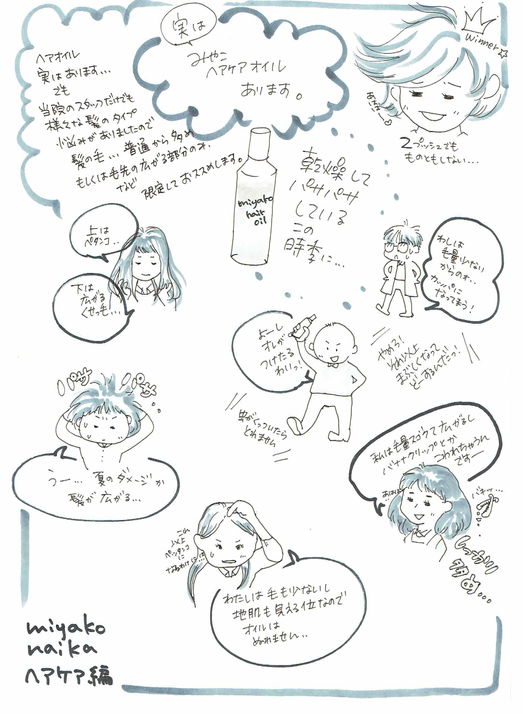 実は
みやこ
ヘアケアオイル
あります。
ヘアオイル
実はあります…
でも
当院のスタッフだけでも
様々な髪のタイプ
悩みがありましたので
髪の毛…普通から多め
もしくは毛先の広がる部分のみ
など 限定しておススメします。
winner
2プッシュでも
ものともしない…
miyako
hair
oil
乾燥して
パサパサ
している
この
時季に…
上は
ペタンコ…
下は
広がる
くせっ毛…
わしは
毛量少ない
からのォ…
カッパに
なってまう!
よーし
オレが
つけたる
わいっ!
やめろ!
それ以上
まぶしくなって
どーすんだっ!
虫がくっついたら
とれません
パサ
パサ
うー… 夏のダメージか
髪が広がる…
私は毛量スゴクて広がるし
バナナクリップとか
こわれちゃうん
ですー
バキッ…
しっかり
多め…
これ
以上
ペッタンコに
わたしは毛も少ないし
地肌も見える位なので
オイルは
ぬれません…
miyako
naika
ヘアケア編